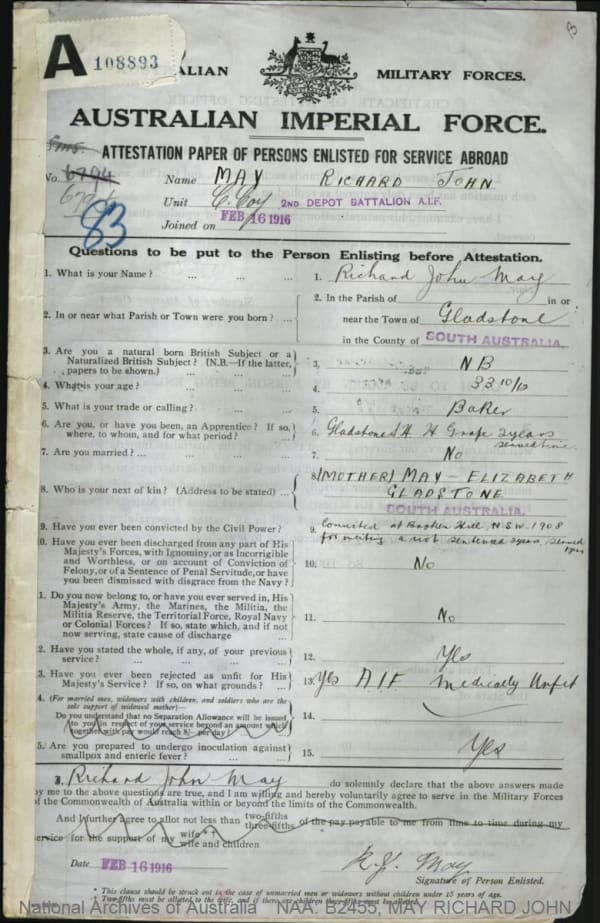 A 108893
ALIAN MILITARY FORCES.
AUSTRALIAN IMPERIAL FORCE.
ATTESTATION PAPER OF PERSONS ENLISTED FOR SERVICE ABROAD
No. 6794 Name MAY RICHARD JOHN
83
Unit C. Coy 2ND DEPOT BATTALION A.I.F.
Joined on FEB 16 1916
Questions to be put to the Person Enlisting before Attestation.
1. What is your Name? ... ... ... 1. Richard John May
2. In or near what Parish or Town were you born? ... 2. In the Parish of in or
near the Town of Gladstone
in the County of SOUTH AUSTRALIA.
3. Are you a natural born British Subject or a
Naturalized British Subject? (N.B.—If the latter,
papers to be shown.) 3. NB
4. What is your age? 4. 33 10/12
5. What is your trade or calling? 5. Baker
6. Are you, or have you been, an Apprentice? If so,
where, to whom, and for what period? 6. Gladstone SA H 2 years
served time
7. Are you married? 7. No
8. Who is your next of kin? (Address to be stated) 8. (MOTHER) MAY - ELIZABETH
GLADSTONE
SOUTH AUSTRALIA.
9. Have you ever been convicted by the Civil Power? 9. Convicted at Broken Hill, N.S.W. 1908
for a riot sentenced 2 years, served
0. Have you ever been discharged from any part of His
Majesty's Forces, with Ignominy, or as Incorrigible
and Worthless, or on account of Conviction of
Felony, or of a Sentence of Penal Servitude, or have
you been dismissed with disgrace from the Navy? 10. No
1. Do you now belong to, or have you ever served in, His
Majesty's Army, the Marines, the Militia, the
Militia Reserve, the Territorial Force, Royal Navy
or Colonial Forces? If so, state which, and if not
now serving, state cause of discharge 11. No
2. Have you stated the whole, if any, of your previous
service? 12. Yes
3. Have you ever been rejected as unfit for His
Majesty's Service? If so, on what grounds? 13. Yes AIF Medically Unfit
4. (For married men, widowers with children, and soldiers who are the
sole support of widowed mother)—
Do you understand that no Separation Allowance will be issued
to you in respect of your service beyond an amount which
together with pay would reach 8/- per day? 14.
5. Are you prepared to undergo inoculation against
smallpox and enteric fever? 15. Yes
I, Richard John May do solemnly declare that the above answers made
by me to the above questions are true, and I am willing and hereby voluntarily agree to serve in the Military Forces
of the Commonwealth of Australia within or beyond the limits of the Commonwealth.
And I further agree to allot not less than two-fifths three-fifths of the pay payable to me from time to time during my
service for the support of my wife wife and children
Date FEB 16 1916 R. J. May
Signature of Person Enlisted.
* This clause should be struck out in the case of unmarried men or widowers without children under 18 years of age.
† Two-fifths must be allotted to the wife, and if there are children three-fifths must be allotted.
National Archives of Australia NAA: B2455, MAY RICHARD JOHN